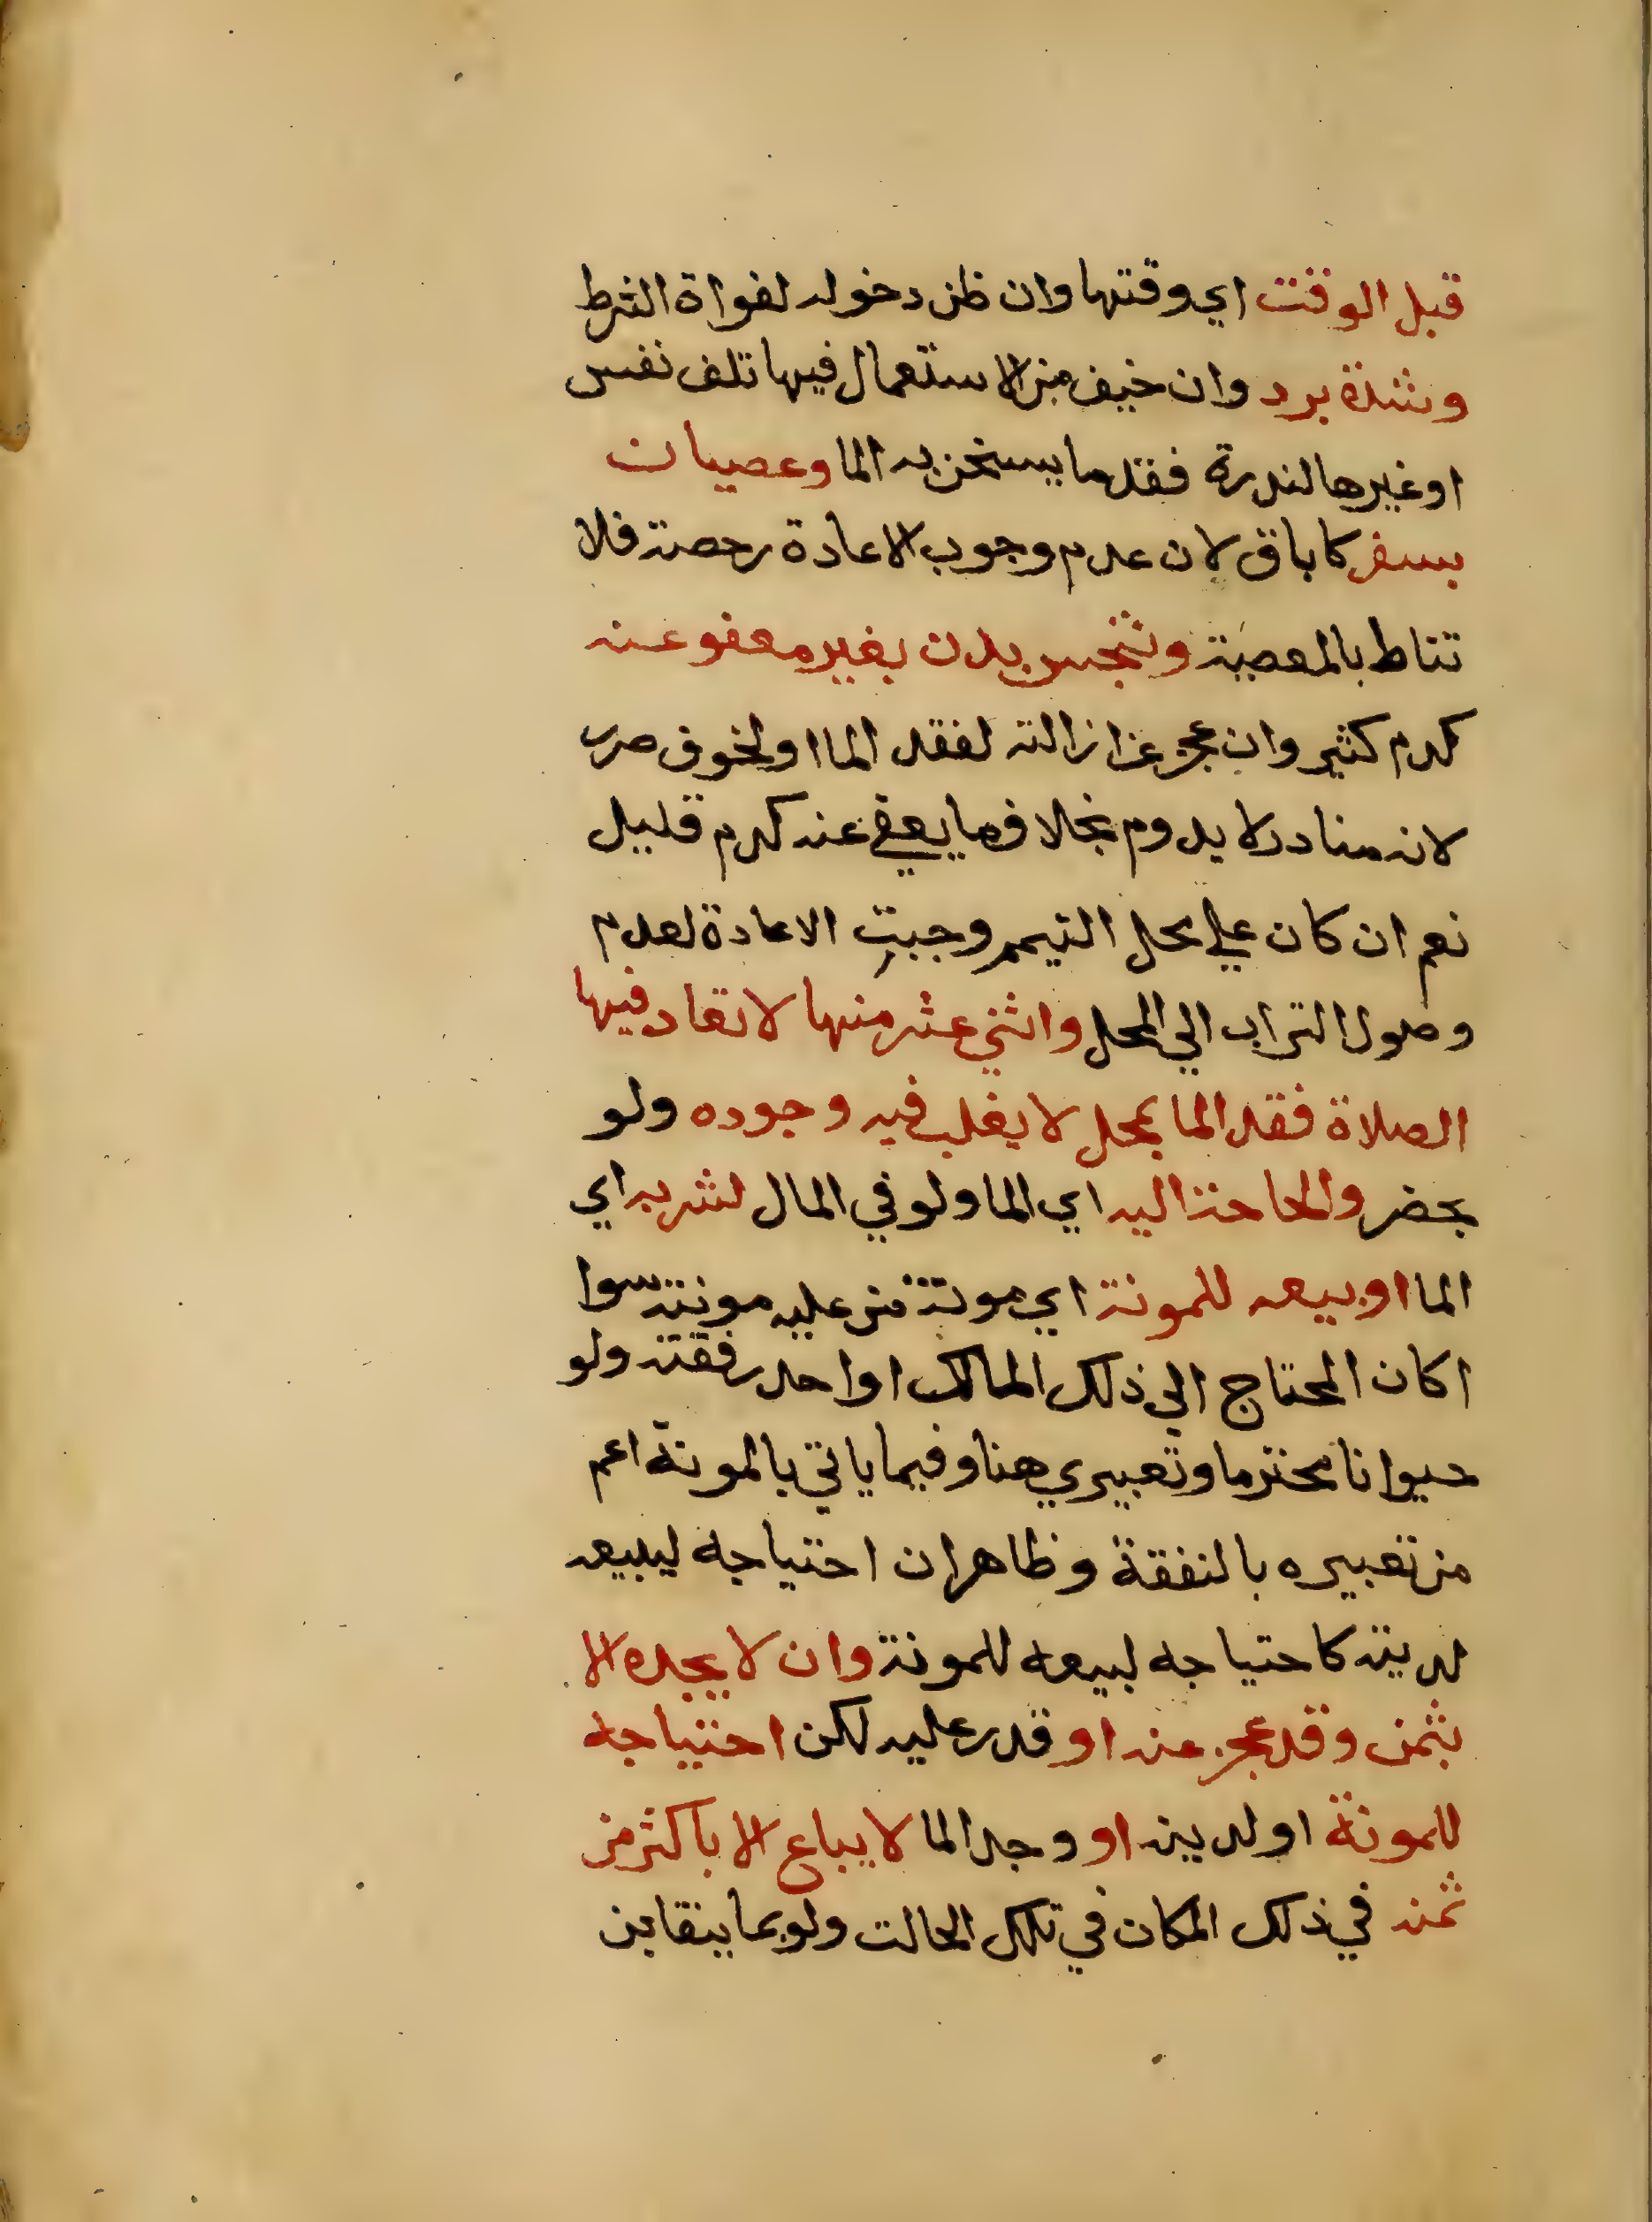 قبل الوقت اي وقتها وان ظن دخوله لفواة الشرط
وشدة برد وان خيف من الاستعمال فيها تلف نفس
اوغيرها لندرة فقد ما يسخن به الما وعصيان
بسفر كاباق لان عدم وجوب الاعادة رخصة فلا
تناط بالمعصية وتنجس بدن بغير معفو عنه
كدم كثير وان عجز عن ازالته لفقد الما او لخوف ضرر
لانه نادر لا يدوم بخلاف ما يعفي عنه كدم قليل
نعم ان كان علي محل التيمم وجبت الاعادة لعدم
وصول التراب الي المحل واثني عشر منها لا تعاد فيها
الصلاة فقد الما بمحل لا يغلب فيه وجوده ولو
بحضر والحاجة اليه اي الما ولو في المال لشربه اي
الما او بيعه للمونة اي مونة من عليه مونته سوا
اكان المحتاج الي ذلك المالك او احد رفقته ولو
حيوانا محترما وتعبيري هنا وفيما ياتي بالمونة اعم
من تعبيره بالنفقة وظاهر ان احتياجه ليبيعه
لدينه كاحتياجه لبيعه للمونة وان لا يجده الا
بثمن وقد عجز عنه او قدر عليه لكن احتياجه
للمونة او لدينه او وجد الما لا يباع الا باكثر من
ثمنه في ذلك المكان في تلك الحالت ولو بما يتغابن